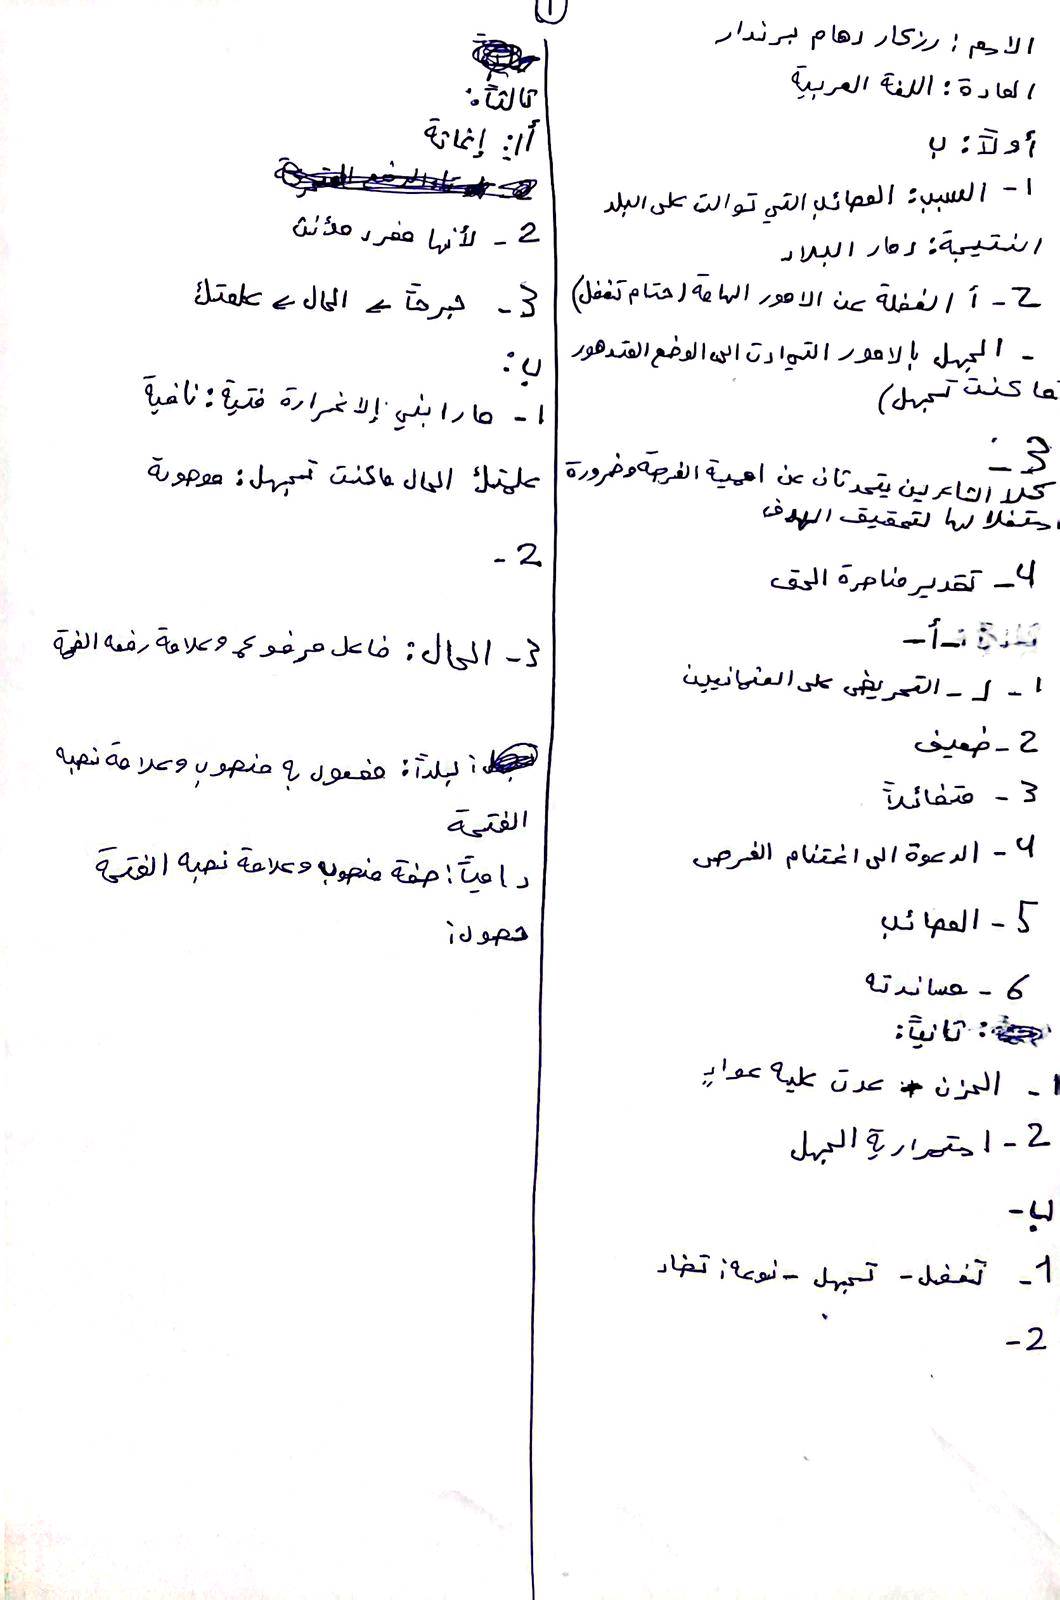 1
الاسم : رزكار دهام برندار
المادة : اللغة العربية
أولاً : ب
1- السبب : المصائب التي توالت على البلد
النتيجة : دمار البلاد
2- أ الغفلة عن الامور الهامة (حتام تغفل)
- الجهل بالامور التي ادت الى الوضع المتدهور
ما كنت تجهل)
3-
كلا الشاعرين يتحدثان عن اهمية الفرصة وضرورة
استغلالها لتحقيق الهدف
4- تقدير مناصرة الحق
- أ -
1- - التحريض على العثمانيين
2- ضعيف
3- متفائلاً
4- الدعوة الى اغتنام الفرص
5- المصائب
6- مساندته
ثانياً :
1- الحزن عدت عليه عوادٍ
2- استمرارية الجهل
ب-
1- تغفل - تجهل - نوعه : تضاد
2-
ثالثاً :
أ : إغاثة
2- لأنها مفرد مؤنث
3- الحال علمتك
ب :
1- مارا بني إلا غرارة فتية : نافية
علمتك الحال ما كنت تجهل : موصولة
2-
3- الحال : فاعل مرفوع وعلامة رفعه الضمة
بلداً : مفعول به منصوب وعلامة نصبه
الفتحة
دامياً : صفة منصوب وعلامة نصبه الفتحة